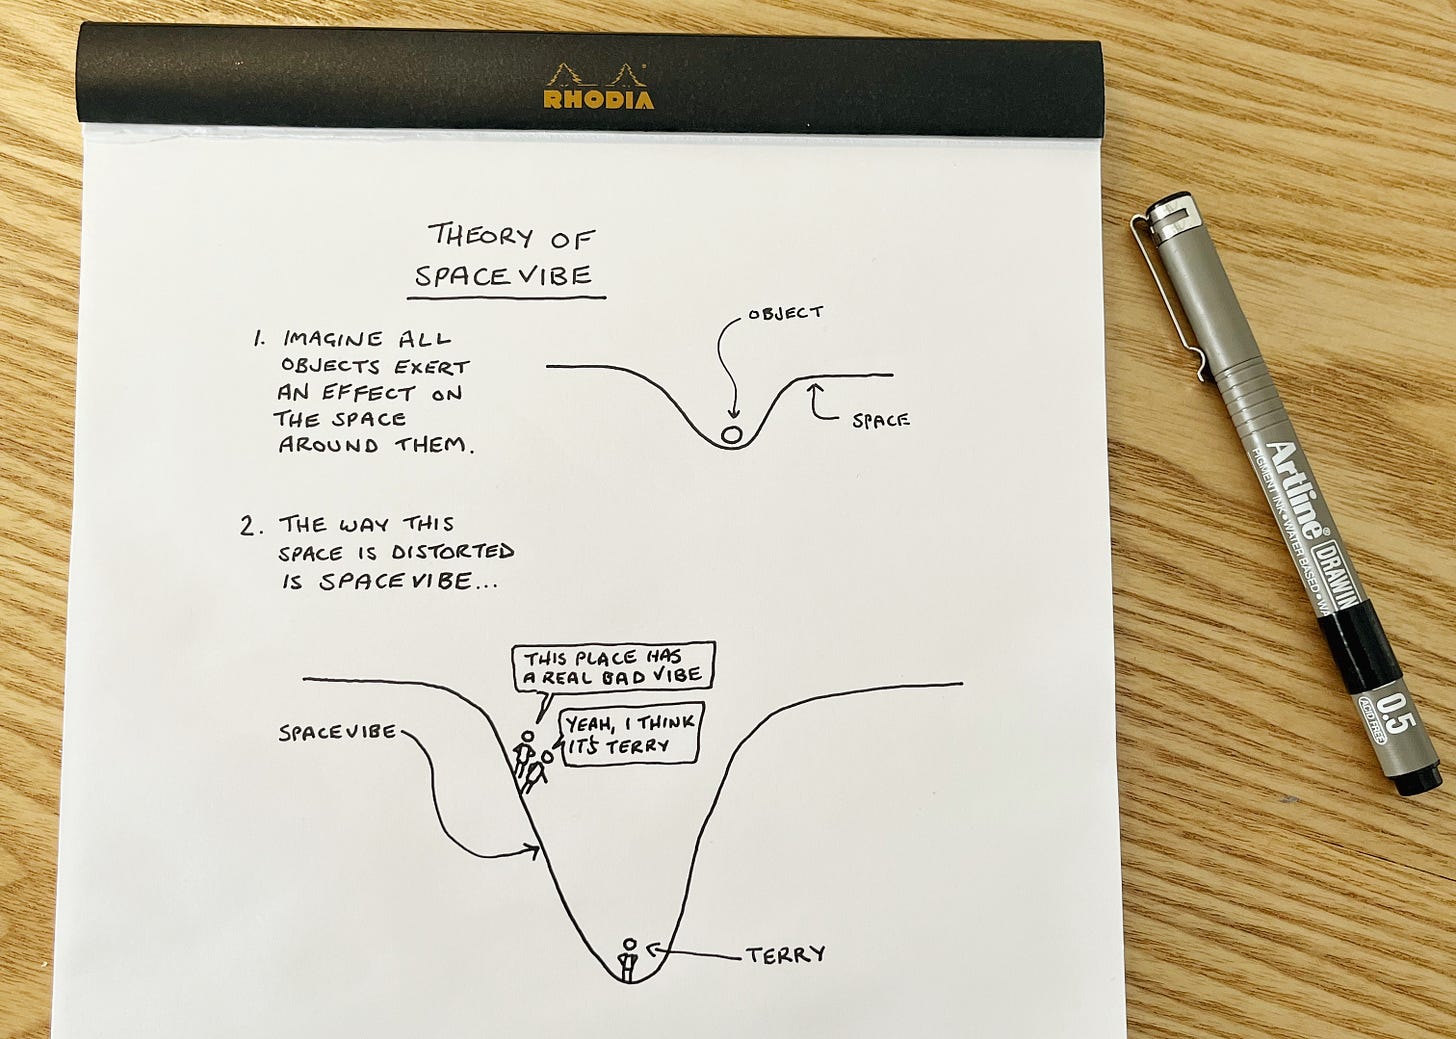 RHODIA
THEORY OF
SPACEVIBE
1. IMAGINE ALL
OBJECTS EXERT
AN EFFECT ON
THE SPACE
AROUND THEM.
OBJECT
SPACE
2. THE WAY THIS
SPACE IS DISTORTED
IS SPACEVIBE...
THIS PLACE HAS
A REAL BAD VIBE
YEAH, I THINK
IT'S TERRY
SPACEVIBE
TERRY
Artline® DRAWIN
PIGMENT INK • WATER BASED • WA
0.5
ACID FREE